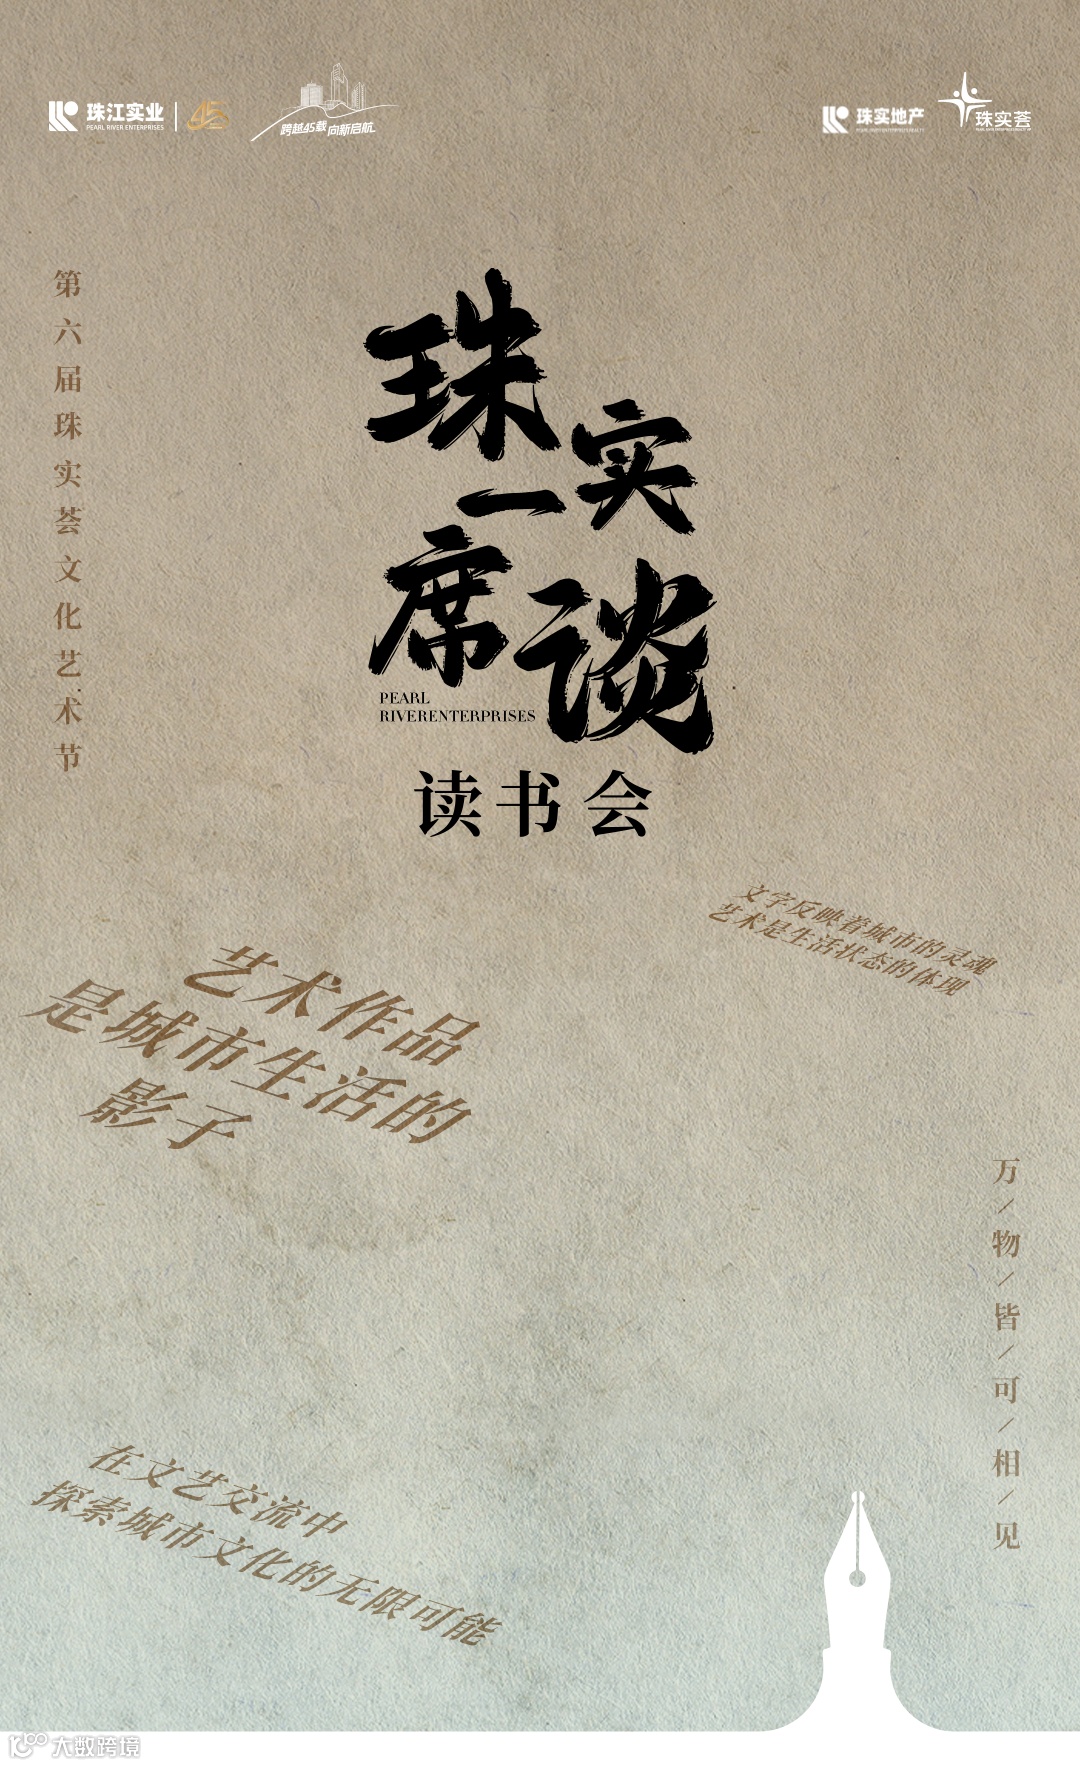 珠江实业
PEARL RIVER ENTERPRISES
45
跨越45载 向新启航
珠实地产
珠实荟
第六届珠实荟文化艺术节
珠实
一席谈
PEARL
RIVERENTERPRISES
读书会
文字反映着城市的灵魂
艺术是生活状态的体现
艺术作品
是城市生活的
影子
万/物/皆/可/相/见
在文艺交流中
探索城市文化的无限可能
大数跨境